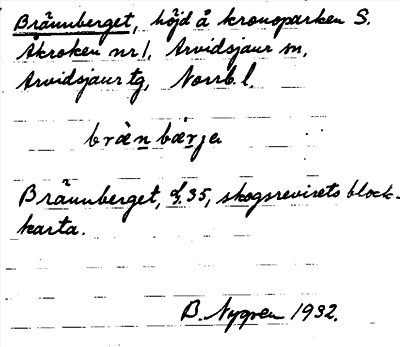 Brännberget, höjd å kronoparken S.
Åkroken nr 1, Arvidsjaur sn,
Arvidsjaur tg, Norrb. l.
brä̀n bærje
Brännberget, d. 35, skogsrevirets block-
karta.
B. Nygren 1932.